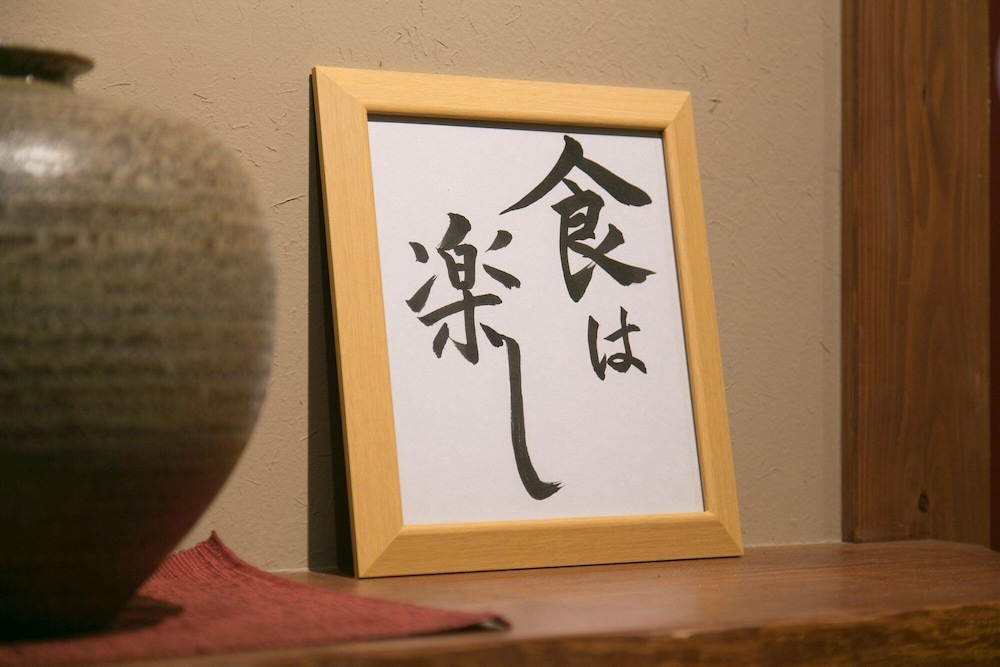 食は
楽し